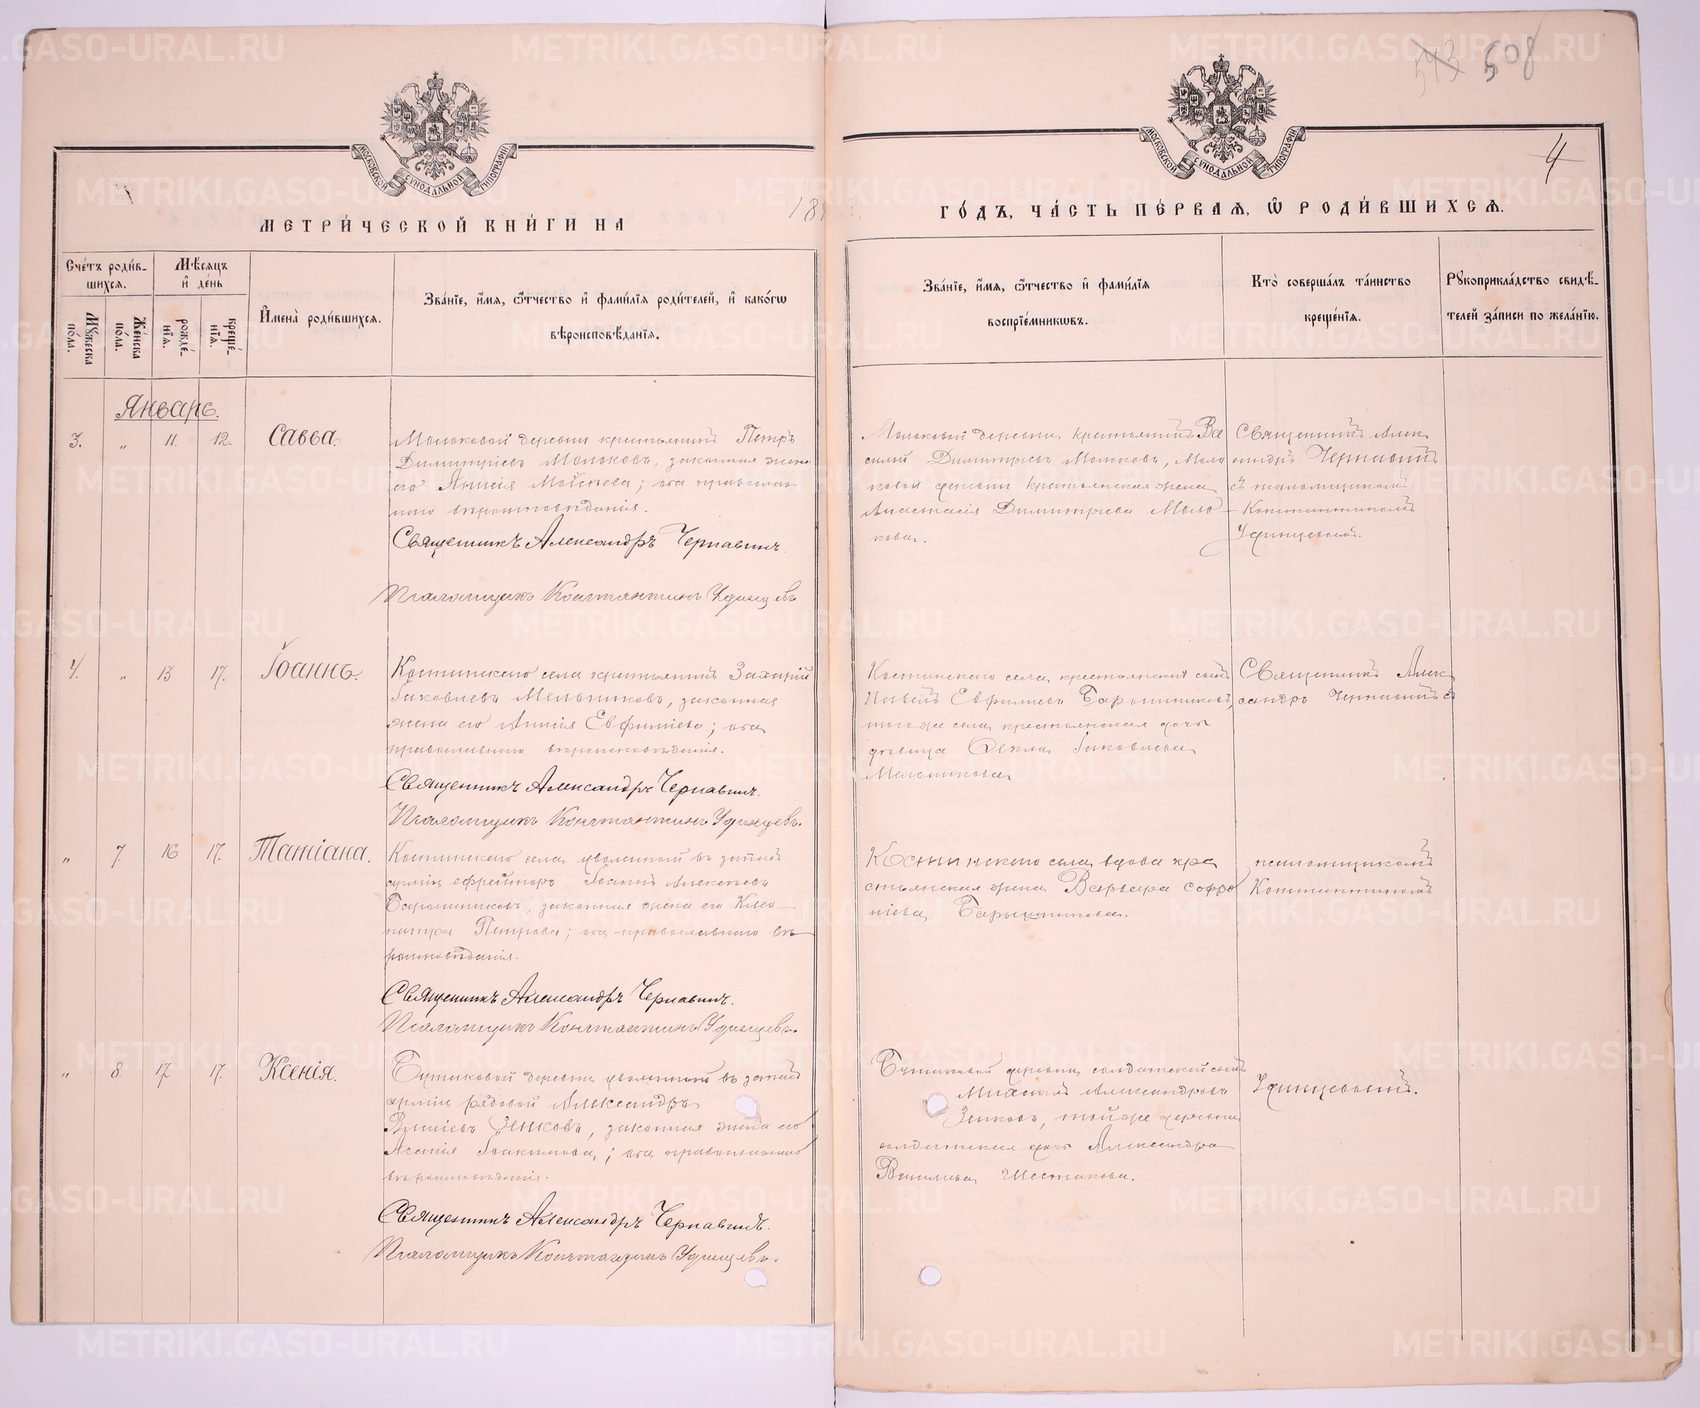 543 508
4
МОСКОВСКОЙ СѴНОДАЛЬНОЙ ТИПОГРАФІИ
МОСКОВСКОЙ СѴНОДАЛЬНОЙ ТИПОГРАФІИ
МЕТРИ́ЧЕСКОЙ КНИ́ГИ НА 18
ГО́ДЪ, ЧА́СТЬ ПЕ́РВАѦ, Ѡ РОДИ́ВШИХСѦ.
Сче́тъ роди́в-
шихсѧ.
Мꙋ́жеска по́ла.
Же́нска по́ла.
Мѣ́сѧцъ
и҆ де́нь
рожде́-
нїѧ.
креще́-
нїѧ.
И҆мена̀ роди́вшихсѧ.
Зва́нїе, и҆́мѧ, ѻ҆́тчество и҆ фами́лїѧ роди́телей, и҆ како́гѡ
вѣроисповѣ́данїѧ.
Зва́нїе, и҆́мѧ, ѻ҆́тчество и҆ фами́лїѧ
воспрїе́мникѡвъ.
Кто̀ соверша́лъ та́инство
креще́нїѧ.
Рꙋкоприкла́дство свидѣ́-
телей за́писи по жела́нїю.
Январь.
3. „ 11. 12. Савва
Молоковой деревни крестьянинъ Петръ
Димитріевъ Молоковъ, законная жена
его Анисія Моисеева; оба православ-
наго вѣроисповѣданія.
Священникъ Александръ Чернавинъ.
Псаломщикъ Константинъ Удинцевъ
Молоковой деревни крестьянинъ Ва
силій Димитріевъ Молоковъ, Моло
ковой деревни крестьянская жена
Анастасія Димитріева Моло-
кова.
Священникъ Алек
сандръ Чернавинъ
съ псаломщикомъ
Константиномъ
Удинцевымъ.
4. „ 13 17. Іоаннъ.
Костинскаго села крестьянинъ Захарій
Іаковлевъ Мельниковъ, законная
жена его Анисія Евфиміева; оба
православнаго вѣроисповѣданія.
Священникъ Александръ Чернавинъ.
Псаломщикъ Константинъ Удинцевъ.
Костинскаго села крестьянскій сынъ
Евфиміевъ
тогоже села крестьянская дочь
дѣвица Ѳекла Іаковлева
Мельникова
Священникъ Алек
сандръ Чернавинъ съ
„ 7 16 17. Татіана.
Костинскаго села уволенный въ запасъ
арміи ефрейторъ Іоаннъ Алексѣевъ
законная жена его Клео-
патра Петрова; оба православнаго вѣ-
роисповѣданія.
Священникъ Александръ Чернавинъ.
Псаломщикъ Константинъ Удинцевъ.
Костинскаго села вдова кре
стьянская жена Варвара Софро
ніева
псаломщикомъ
Константиномъ
„ 8. 17. 17. Ксенія.
деревни уволенный въ запасъ
арміи рядовой Александръ
Зенковъ, законная жена его
Агапія Іоакимова; оба православнаго
вѣроисповѣданія.
Священникъ Александръ Чернавинъ.
Псаломщикъ Константинъ Удинцевъ.
деревни солдатскій сынъ
Михаилъ Александровъ
Зенковъ, тойже деревни
солдатская дочь Александра
Васильева Шестакова.
Удинцевымъ.
METRIKI.GASO-URAL.RU